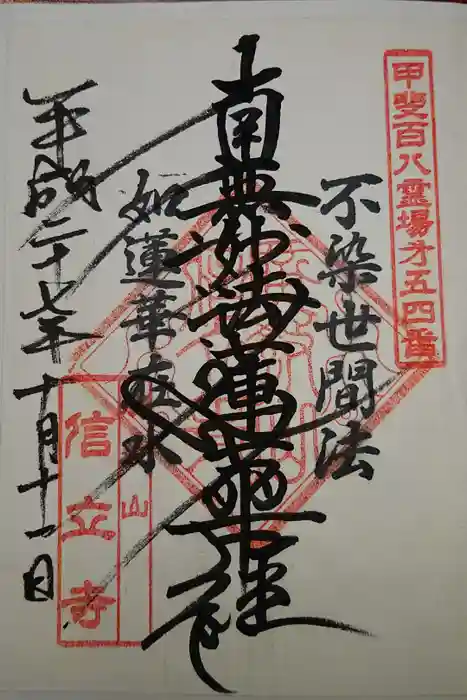 甲斐百八霊場才五四番
不染世間法
南無妙法蓮華経
如蓮華在水
平成二十七年十月十一日
山
信立寺